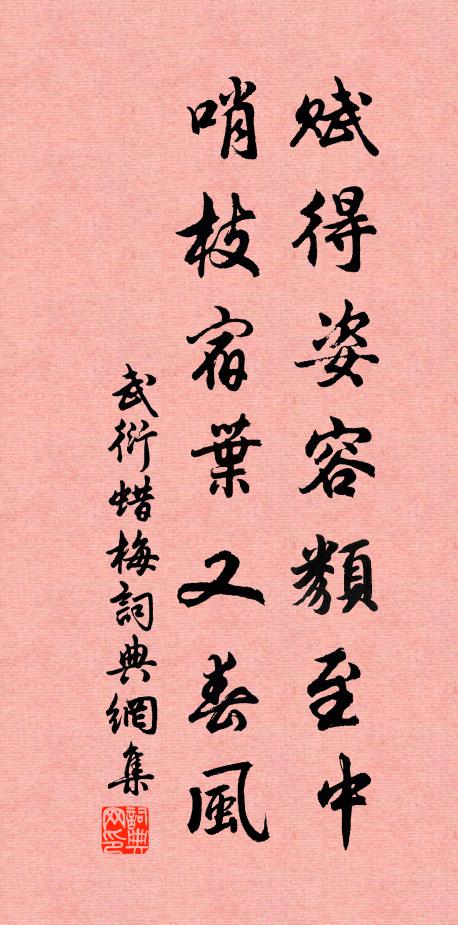 賦得姿容類至中
哨枝宿葉又春風
武衍蜡梅詞典網集
詞典网印